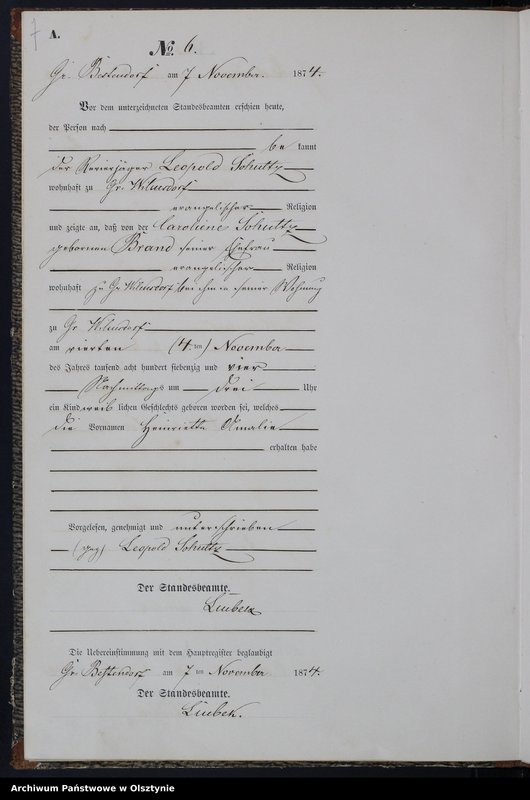 A.
7
No. 6.
Gr. Bestendorf am 7 November 1874.
Vor dem unterzeichneten Standesbeamten erschien heute,
der Person nach
be kannt
der Revierjäger Leopold Schultz
wohnhaft zu Gr. Wilmsdorf
evangelischer Religion
und zeigte an, daß von der Caroline Schultz
gebornen Brand seiner Ehefrau
evangelischer Religion
wohnhaft zu Gr Wilmsdorf bei ihm in seiner Wohnung
zu Gr. Wilmsdorf
am vierten (4ten) November
des Jahres tausend acht hundert siebenzig und vier
Nachmittags um drei Uhr
ein Kind weib lichen Geschlechts geboren worden sei, welches
die Vornamen Henriette Amalie
erhalten habe
Vorgelesen, genehmigt und unterschrieben
(gez) Leopold Schultz
Der Standesbeamte.
Liubek
Die Uebereinstimmung mit dem Hauptregister beglaubigt
Gr. Bestendorf am 7 ten November 1874.
Der Standesbeamte.
Liubek.
Archiwum Państwowe w Olsztynie